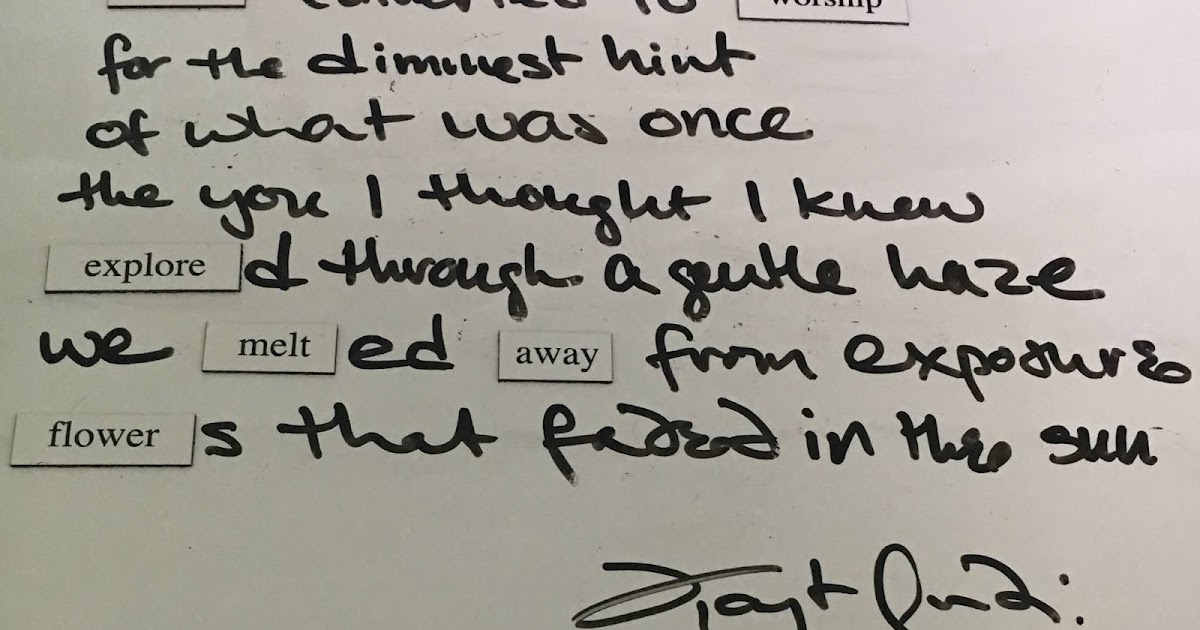 worship
for the dimmest hint
of what was once
the you I thought I knew
explored through a gentle haze
we melted away from exposure
flowers that faded in the sun